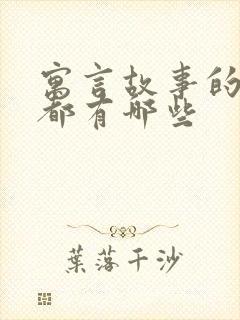 寓言故事的
都有哪些
葉落千沙